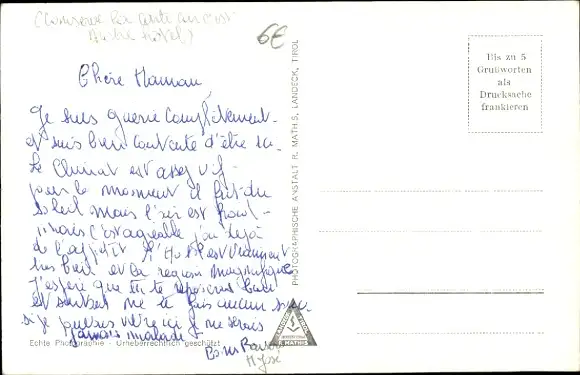 (Conserve la carte
Autre hôtel)
6€
Chère Maman,
Je suis guérie complètement
et suis bien contente d'être là.
Le Climat est assez vif -
pour le moment il fait du
soleil mais l'air est froid -
mais c'est agréable j'ai déjà
de l'appétit L'Hôtel est vraiment
très bien et la région magnifique
J'espère que tu te reposes bien
et surtout ne te fais aucun
si je vivre ici je ne serais
jamais malade
Bons Baisers
M José
Bis zu 5
Grußworten
als
Drucksache
frankieren
PHOTOGRAPHISCHE ANSTALT R. MATHIS, LANDECK, TIROL
R. MATHIS
Echte Photographie - Urheberrechtlich geschützt